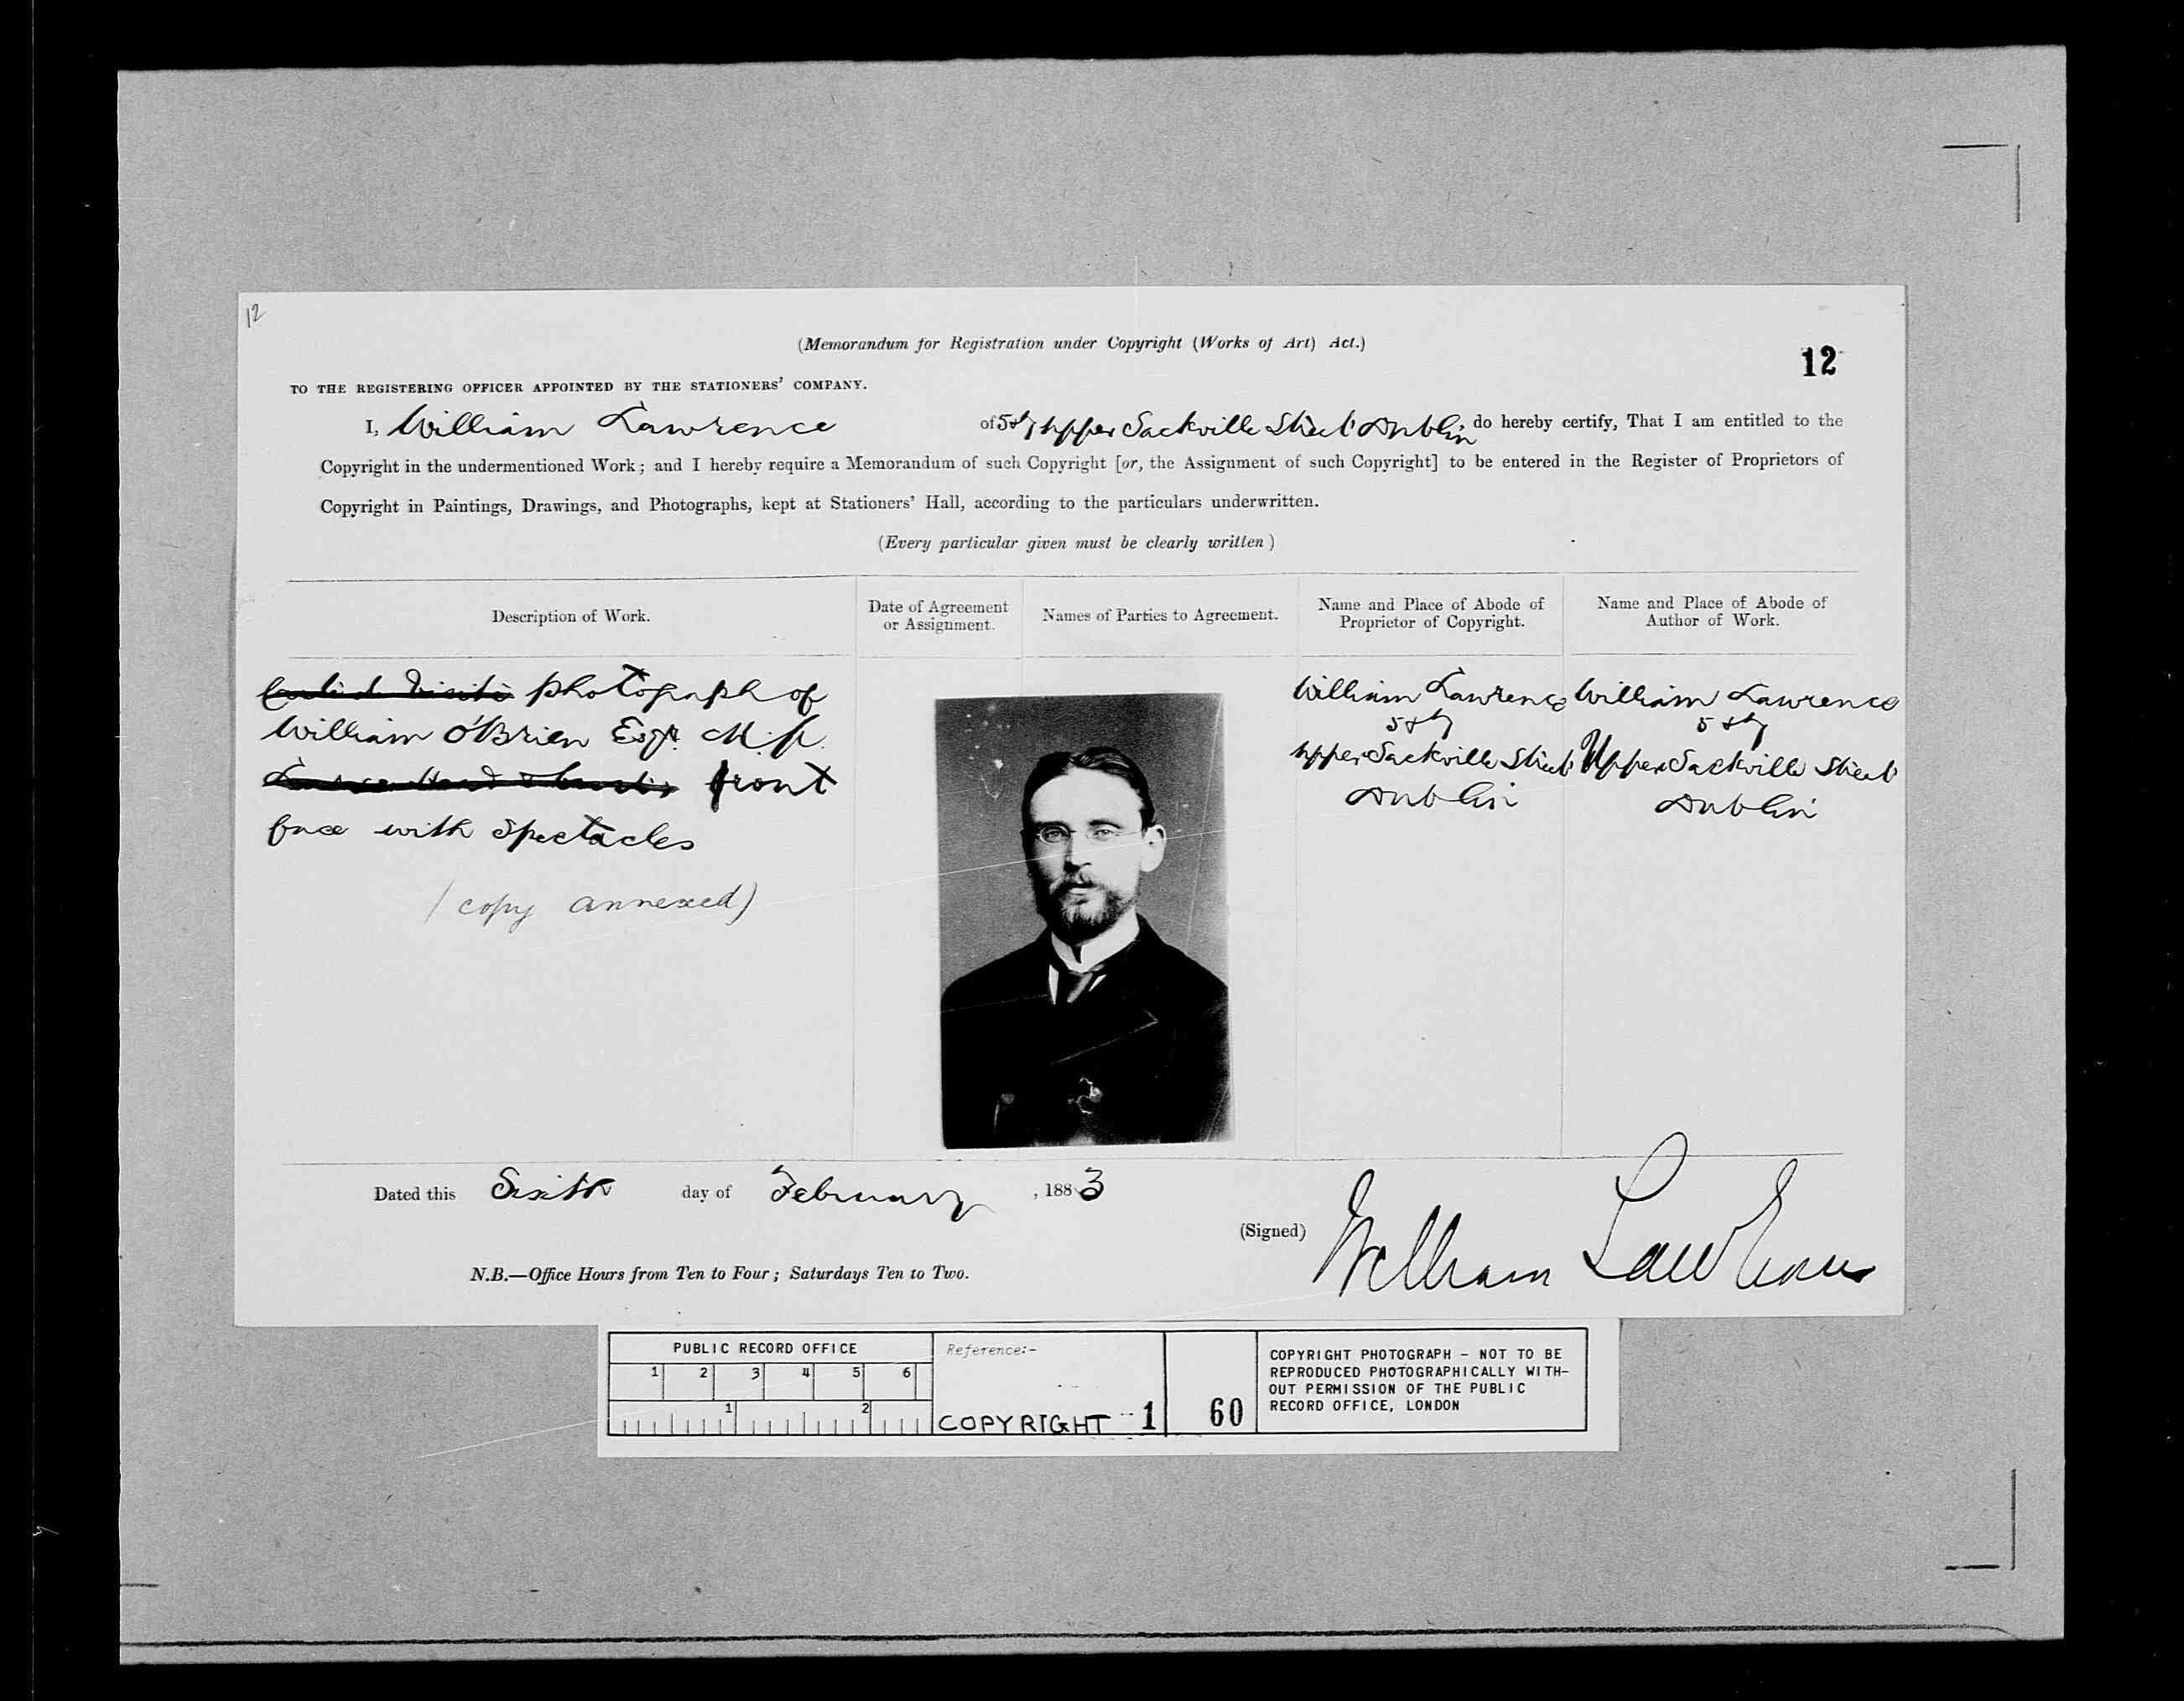 12
(Memorandum for Registration under Copyright (Works of Art) Act.)
12
TO THE REGISTERING OFFICER APPOINTED BY THE STATIONERS' COMPANY.
I, William Lawrence of 5 & 7 Upper Sackville Street Dublin, do hereby certify, That I am entitled to the
Copyright in the undermentioned Work; and I hereby require a Memorandum of such Copyright [or, the Assignment of such Copyright] to be entered in the Register of Proprietors of
Copyright in Paintings, Drawings, and Photographs, kept at Stationers' Hall, according to the particulars underwritten.
(Every particular given must be clearly written)
Description of Work.
Date of Agreement
or Assignment.
Names of Parties to Agreement.
Name and Place of Abode of
Proprietor of Copyright.
Name and Place of Abode of
Author of Work.
photograph of
William O'Brien Esqr. M.P.
front
face with Spectacles
(copy annexed)
William Lawrence
5 & 7
Upper Sackville Street
Dublin
William Lawrence
5 & 7
Upper Sackville Street
Dublin
Dated this Sixth day of February, 1883
(Signed) William Lawrence
N.B.—Office Hours from Ten to Four; Saturdays Ten to Two.
PUBLIC RECORD OFFICE
1 2 3 4 5 6
1 2
Reference:-
COPYRIGHT 1
60
COPYRIGHT PHOTOGRAPH - NOT TO BE
REPRODUCED PHOTOGRAPHICALLY WITH-
OUT PERMISSION OF THE PUBLIC
RECORD OFFICE, LONDON